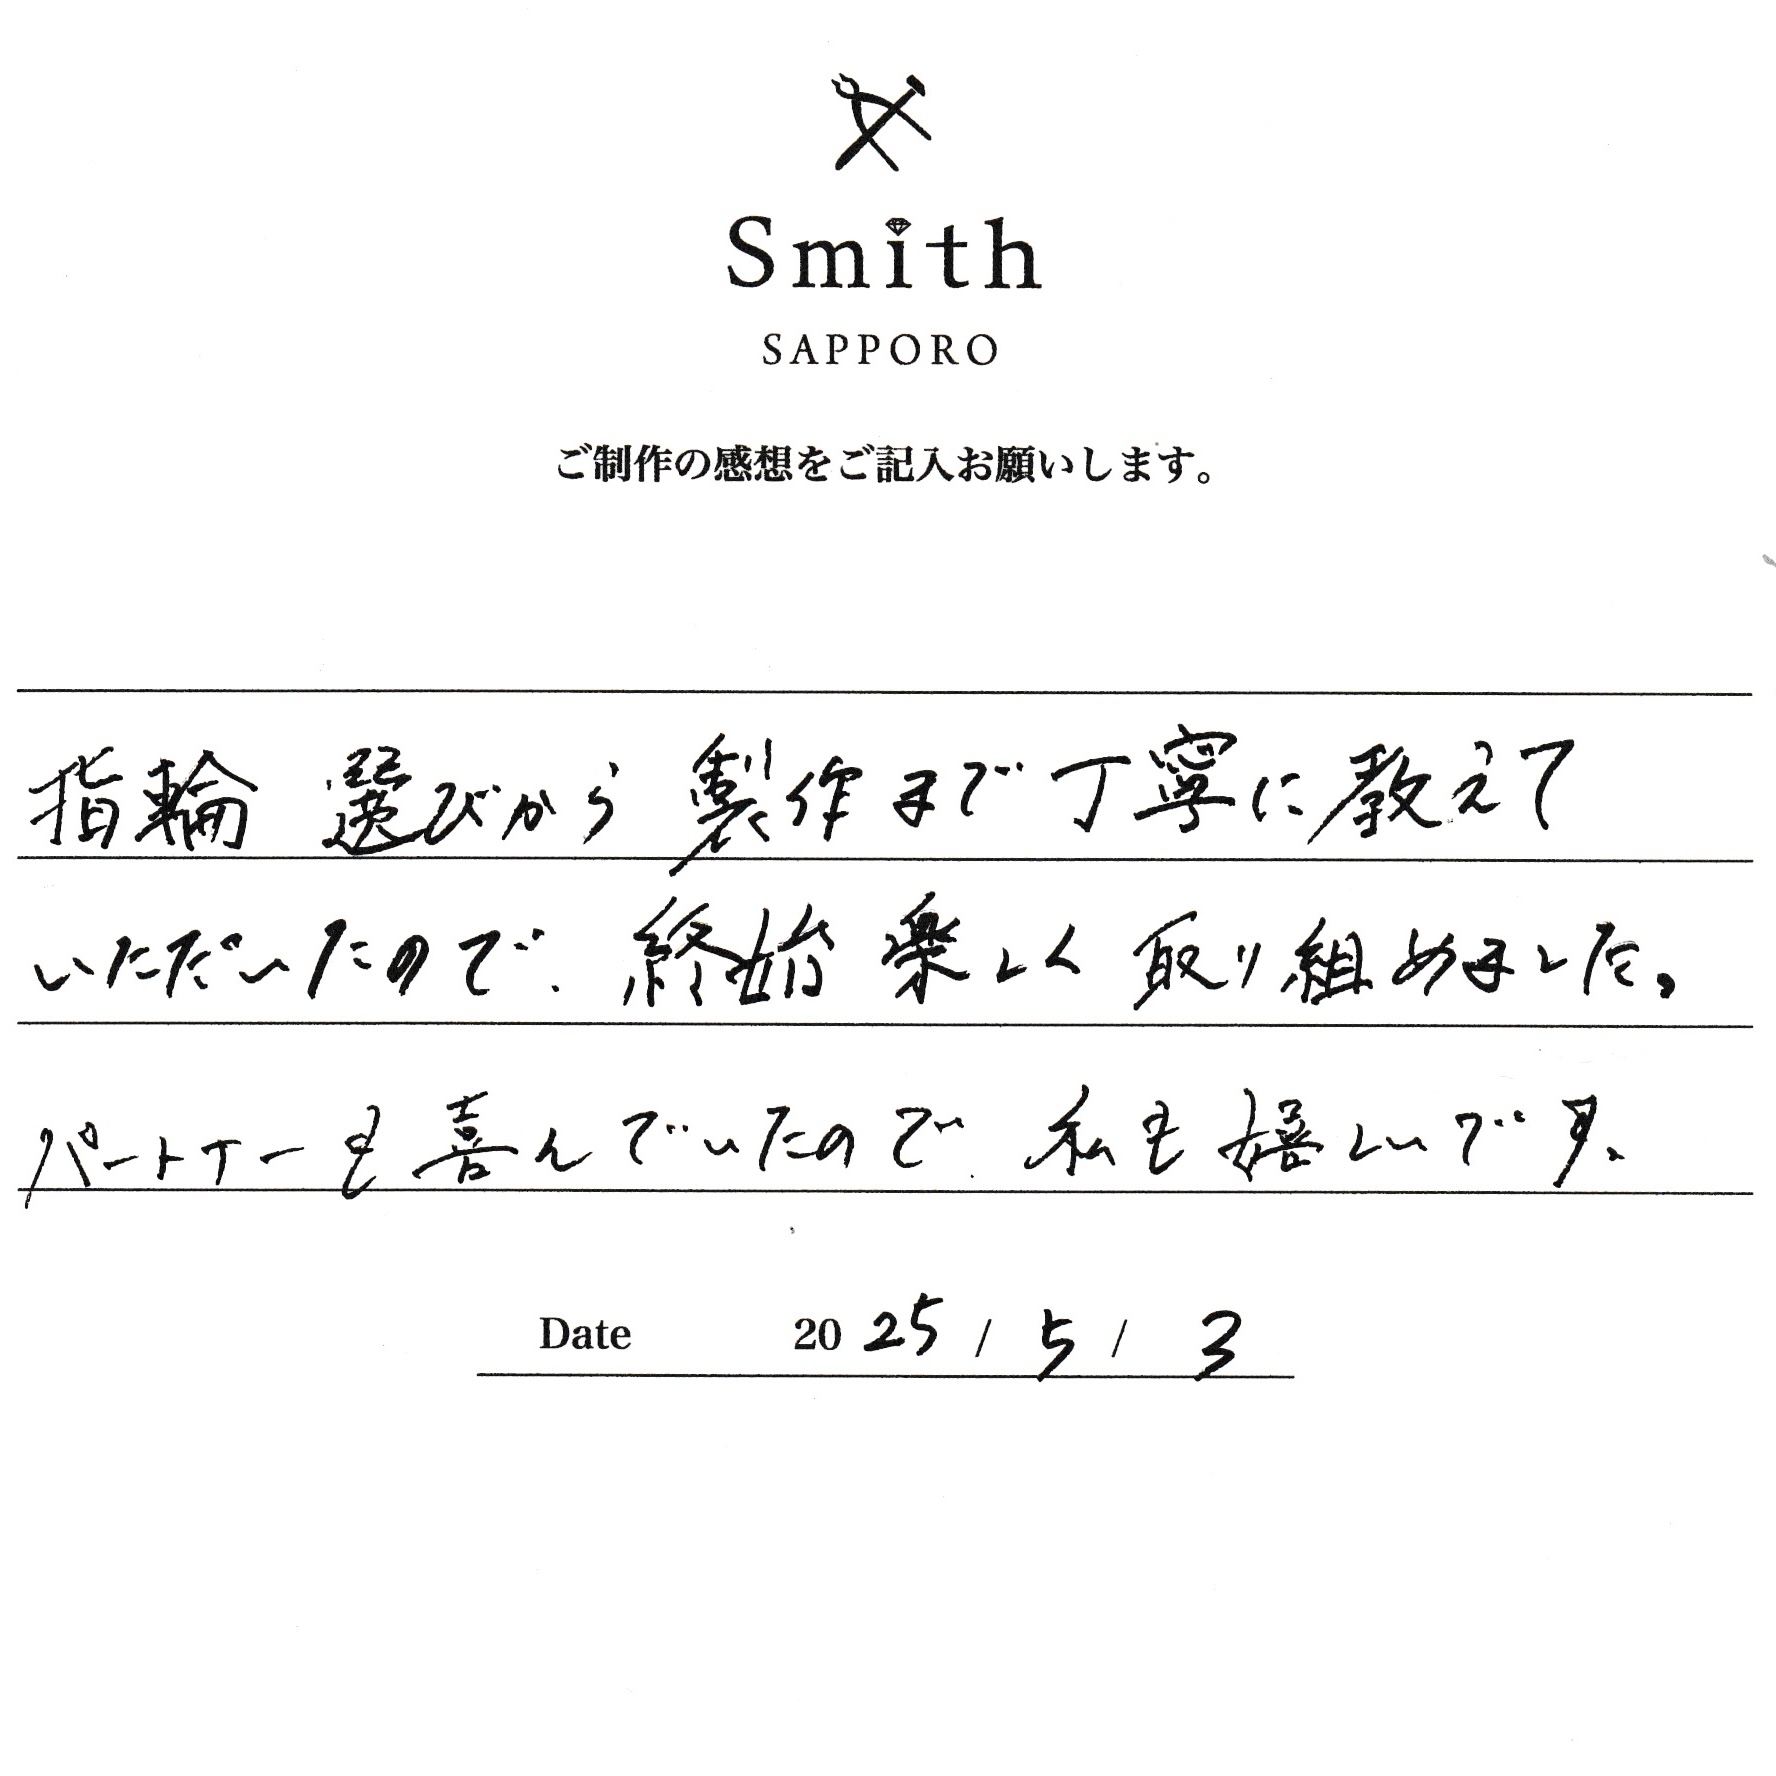 Smith
SAPPORO
ご制作の感想をご記入お願いします。
指輪 選びから製作まで丁寧に教えて
いただいたので、終始楽しく取り組めました。
パートナーも喜んでいたので、私も嬉しいです。
Date 2025 / 5 / 3